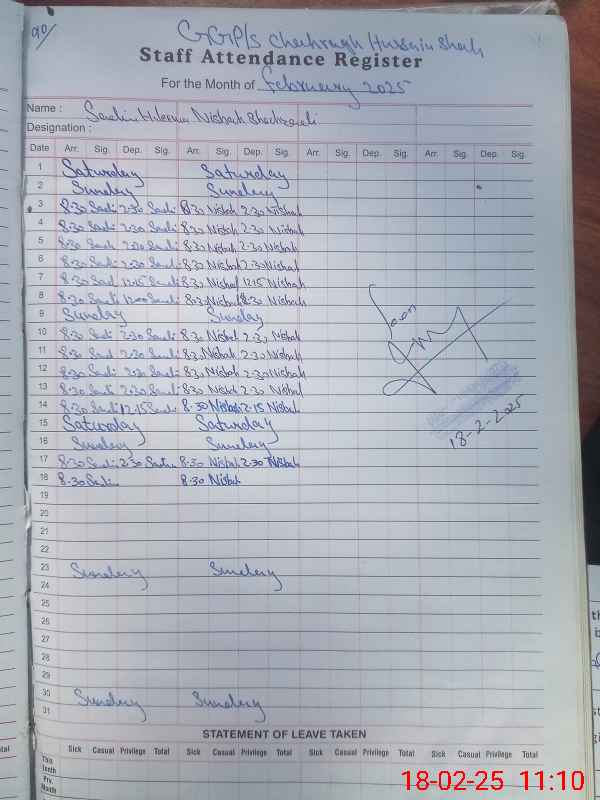 90/ GGP/s Hussain Shah
Staff Attendance Register
For the Month of February 2025
Name : Nishah
Designation :
Date Arr. Sig. Dep. Sig. Arr. Sig. Dep. Sig. Arr. Sig. Dep. Sig. Arr. Sig. Dep. Sig.
1 Saturday Saturday
2 Sunday Sunday
3 8-30 Sadi 2-30 Sadi 8-30 Nishah 2-30 Nishah
4 8-30 Sadi 2-30 Sadi 8-30 Nishah 2-30 Nishah
5 8-30 Sadi Sadi 8-30 Nishah 2-30 Nishah
6 8-30 Sadi 2-30 Sadi 8-30 Nishah 2-30 Nishah
7 8-30 Sadi 12-15 Sadi 8-30 Nishah 12-15 Nishah
8 8-30 Sadi Sadi Nishah Nishah
9 Sunday Sunday
10 8-30 Sadi 2-30 Sadi 8-30 Nishah 2-30 Nishah
11 8-30 Sadi 2-30 Sadi 8-30 Nishah 2-30 Nishah
12 8-30 Sadi 2-30 Sadi 8-30 Nishah 2-30 Nishah
13 8-30 Sadi 2-30 Sadi 8-30 Nishah 2-30 Nishah
14 8-30 Sadi 12-15 Sadi 8-30 Nishah 2-15 Nishah
15 Saturday Saturday
16 Sunday Sunday
17 8-30 Sadi 2-30 Sadi 8-30 Nishah 2-30 Nishah
18 8-30 Sadi 8-30 Nishah
19
20
21
22
23 Sunday Sunday
24
25
26
27
28
29
30 Sunday Sunday
31
Seen
18-2-2025
STATEMENT OF LEAVE TAKEN
Sick Casual Privilege Total Sick Casual Privilege Total Sick Casual Privilege Total Sick Casual Privilege Total
This Month
Prv. Month
18-02-25 11:10